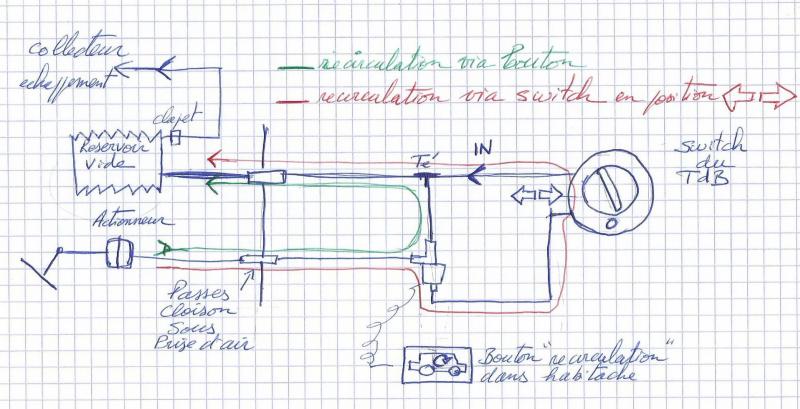 collecteur
echappement
recirculation via Bouton
recirculation via switch en position
clapet
Reservoir
Vide
Té
IN
switch
du
TdB
Actionneur
Passes
Cloison
Sous
Prise d'air
Bouton "recirculation"
dans habitacle